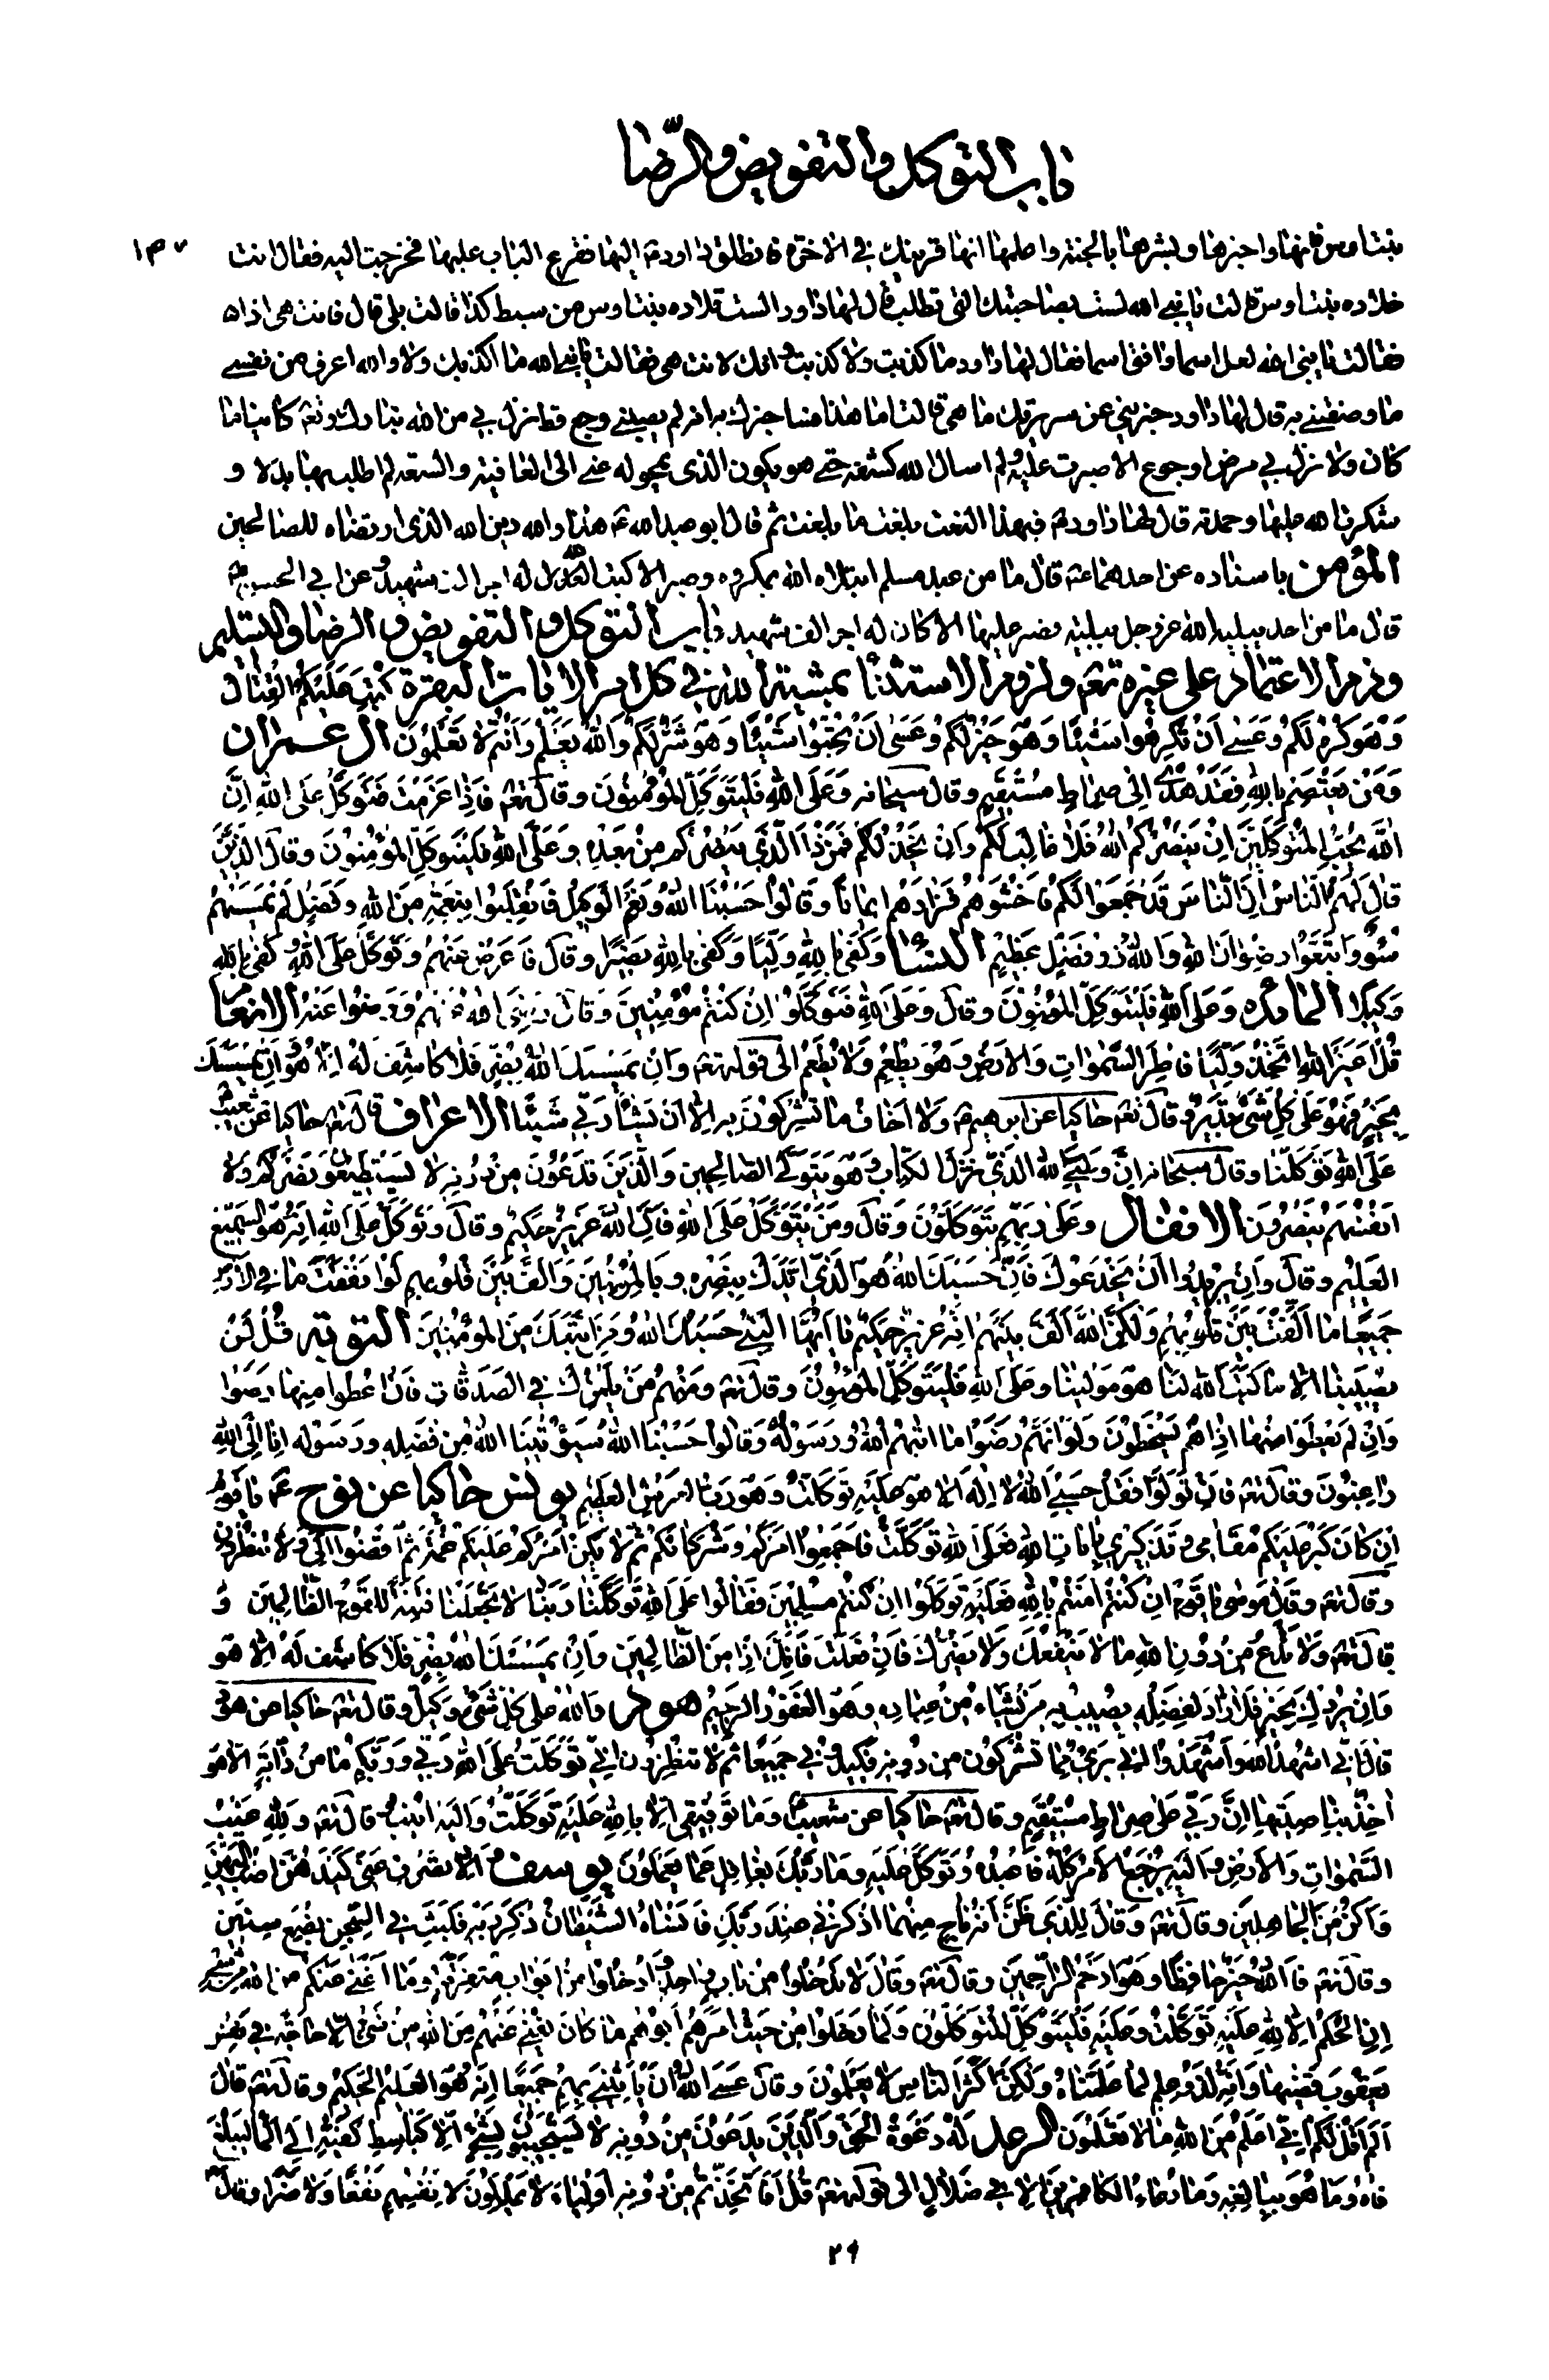 باب التوكل والتفويض والرضا
١٣٧
بنت اوس فاتها واخبرها وبشرها بالجنة واعلمها انها قرينتك في الاخرة فانطلق داود ع اليها فقرع الباب عليها فخرجت اليه فقال انت
خلاده بنت اوس قالت يا نبي الله لست بصاحبتك التي تطلب قال لها داود الست خلاده بنت اوس من سبط كذا قالت بلى قال فانت هي اذاه
فقالت يا نبي الله لعل اسما وافق اسما فقال لها داود ما كذبت ولا كذبت وانك لانت هي فقالت يا نبي الله ما اكذبك ولا والله اعرف من نفسي
ما وصفتني به قال لها داود خبريني عن سريرتك ما هي قالت اما هذا فساخبرك به انه لم يصبني وجع قط نزل بي من الله تبارك وتعم كائنا ما
كان ولا نزل بي مرض او جوع الا صبرت عليه ولم اسال الله كشفه حتى هو يكون الذي يحوله عني الى العافية والسعة لم اطلب بها بدلا و
شكرت الله عليها وحمدته قال لها داود ع فبهذا النعت بلغت ما بلغت ثم قال ابو عبد الله ع هذا والله دين الله الذي ارتضاه للصالحين
المؤمن باسناده عن احدهما ع قال ما من عبد مسلم ابتلاه الله بمكروه وصبر الا كتب له اجر الف شهيد وعن ابي الحسن ع
قال ما من احد يبليه الله عز وجل ببلية فصبر عليها الا كان له اجر الف شهيد باب التوكل والتفويض والرضا والتسليم
وذم الاعتماد على غيره تعم ولزوم الاستثناء بمشية الله في كل امر الايات البقرة كُتِبَ عَلَيْكُمُ الْقِتَالُ
وَهُوَ كُرْهٌ لَكُمْ وَعَسى أَنْ تَكْرَهُوا شَيْئًا وَهُوَ خَيْرٌ لَكُمْ وَعَسى أَنْ تُحِبُّوا شَيْئًا وَهُوَ شَرٌّ لَكُمْ وَاللّٰهُ يَعْلَمُ وَأَنْتُمْ لا تَعْلَمُونَ ال عمران
وَمَنْ يَعْتَصِمْ بِاللّٰهِ فَقَدْ هُدِيَ إِلى صِراطٍ مُسْتَقِيمٍ وقال سبحانه وَعَلَى اللّٰهِ فَلْيَتَوَكَّلِ الْمُؤْمِنُونَ وقال تعم فَإِذا عَزَمْتَ فَتَوَكَّلْ عَلَى اللّٰهِ إِنَّ
اللّٰهَ يُحِبُّ الْمُتَوَكِّلِينَ إِنْ يَنْصُرْكُمُ اللّٰهُ فَلا غالِبَ لَكُمْ وَإِنْ يَخْذُلْكُمْ فَمَنْ ذَا الَّذِي يَنْصُرُكُمْ مِنْ بَعْدِهِ وَعَلَى اللّٰهِ فَلْيَتَوَكَّلِ الْمُؤْمِنُونَ وقال الَّذِينَ
قالَ لَهُمُ النَّاسُ إِنَّ النَّاسَ قَدْ جَمَعُوا لَكُمْ فَاخْشَوْهُمْ فَزادَهُمْ إِيمانًا وَقالُوا حَسْبُنَا اللّٰهُ وَنِعْمَ الْوَكِيلُ فَانْقَلَبُوا بِنِعْمَةٍ مِنَ اللّٰهِ وَفَضْلٍ لَمْ يَمْسَسْهُمْ
سُوءٌ وَاتَّبَعُوا رِضْوانَ اللّٰهِ وَاللّٰهُ ذُو فَضْلٍ عَظِيمٍ النساء وَكَفى بِاللّٰهِ وَلِيًّا وَكَفى بِاللّٰهِ نَصِيرًا وقال فَأَعْرِضْ عَنْهُمْ وَتَوَكَّلْ عَلَى اللّٰهِ وَكَفى بِاللّٰهِ
وَكِيلًا المائده وَعَلَى اللّٰهِ فَلْيَتَوَكَّلِ الْمُؤْمِنُونَ وقال وَعَلَى اللّٰهِ فَتَوَكَّلُوا إِنْ كُنْتُمْ مُؤْمِنِينَ وقال رَضِيَ اللّٰهُ عَنْهُمْ وَرَضُوا عَنْهُ الانعام
قُلْ أَغَيْرَ اللّٰهِ أَتَّخِذُ وَلِيًّا فاطِرِ السَّمٰواتِ وَالْأَرْضِ وَهُوَ يُطْعِمُ وَلا يُطْعَمُ الى قوله تعم وَإِنْ يَمْسَسْكَ اللّٰهُ بِضُرٍّ فَلا كاشِفَ لَهُ إِلَّا هُوَ وَإِنْ يَمْسَسْكَ
بِخَيْرٍ فَهُوَ عَلى كُلِّ شَيْءٍ قَدِيرٌ وقال تعم حاكيا عن ابرهيم ع وَلا أَخافُ ما تُشْرِكُونَ بِهِ إِلَّا أَنْ يَشاءَ رَبِّي شَيْئًا الاعراف قال تعم حاكيا عن شعيب
عَلَى اللّٰهِ تَوَكَّلْنا وقال سبحانه إِنَّ وَلِيِّيَ اللّٰهُ الَّذِي نَزَّلَ الْكِتابَ وَهُوَ يَتَوَلَّى الصَّالِحِينَ وَالَّذِينَ تَدْعُونَ مِنْ دُونِهِ لا يَسْتَطِيعُونَ نَصْرَكُمْ وَلا
أَنْفُسَهُمْ يَنْصُرُونَ الانفال وَعَلى رَبِّهِمْ يَتَوَكَّلُونَ وقال وَمَنْ يَتَوَكَّلْ عَلَى اللّٰهِ فَإِنَّ اللّٰهَ عَزِيزٌ حَكِيمٌ وقال وَتَوَكَّلْ عَلَى اللّٰهِ إِنَّهُ هُوَ السَّمِيعُ
الْعَلِيمُ وقال وَإِنْ يُرِيدُوا أَنْ يَخْدَعُوكَ فَإِنَّ حَسْبَكَ اللّٰهُ هُوَ الَّذِي أَيَّدَكَ بِنَصْرِهِ وَبِالْمُؤْمِنِينَ وَأَلَّفَ بَيْنَ قُلُوبِهِمْ لَوْ أَنْفَقْتَ ما فِي الْأَرْضِ
جَمِيعًا ما أَلَّفْتَ بَيْنَ قُلُوبِهِمْ وَلٰكِنَّ اللّٰهَ أَلَّفَ بَيْنَهُمْ إِنَّهُ عَزِيزٌ حَكِيمٌ يا أَيُّهَا النَّبِيُّ حَسْبُكَ اللّٰهُ وَمَنِ اتَّبَعَكَ مِنَ الْمُؤْمِنِينَ التوبه قُلْ لَنْ
يُصِيبَنا إِلَّا ما كَتَبَ اللّٰهُ لَنا هُوَ مَوْلٰينا وَعَلَى اللّٰهِ فَلْيَتَوَكَّلِ الْمُؤْمِنُونَ وقال تعم وَمِنْهُمْ مَنْ يَلْمِزُكَ فِي الصَّدَقاتِ فَإِنْ أُعْطُوا مِنْها رَضُوا
وَإِنْ لَمْ يُعْطَوْا مِنْها إِذا هُمْ يَسْخَطُونَ وَلَوْ أَنَّهُمْ رَضُوا ما آتٰيهُمُ اللّٰهُ وَرَسُولُهُ وَقالُوا حَسْبُنَا اللّٰهُ سَيُؤْتِينَا اللّٰهُ مِنْ فَضْلِهِ وَرَسُولُهُ إِنَّا إِلَى اللّٰهِ
راغِبُونَ وقال تعم فَإِنْ تَوَلَّوْا فَقُلْ حَسْبِيَ اللّٰهُ لا إِلٰهَ إِلَّا هُوَ عَلَيْهِ تَوَكَّلْتُ وَهُوَ رَبُّ الْعَرْشِ الْعَظِيمِ يونس حاكيا عن نوح ع يا قَوْمِ
إِنْ كانَ كَبُرَ عَلَيْكُمْ مَقامِي وَتَذْكِيرِي بِآياتِ اللّٰهِ فَعَلَى اللّٰهِ تَوَكَّلْتُ فَأَجْمِعُوا أَمْرَكُمْ وَشُرَكاءَكُمْ ثُمَّ لا يَكُنْ أَمْرُكُمْ عَلَيْكُمْ غُمَّةً ثُمَّ اقْضُوا إِلَيَّ وَلا تُنْظِرُونِ
وقال تعم وَقالَ مُوسى يا قَوْمِ إِنْ كُنْتُمْ آمَنْتُمْ بِاللّٰهِ فَعَلَيْهِ تَوَكَّلُوا إِنْ كُنْتُمْ مُسْلِمِينَ فَقالُوا عَلَى اللّٰهِ تَوَكَّلْنا رَبَّنا لا تَجْعَلْنا فِتْنَةً لِلْقَوْمِ الظَّالِمِينَ و
قال تعم وَلا تَدْعُ مِنْ دُونِ اللّٰهِ ما لا يَنْفَعُكَ وَلا يَضُرُّكَ فَإِنْ فَعَلْتَ فَإِنَّكَ إِذًا مِنَ الظَّالِمِينَ وَإِنْ يَمْسَسْكَ اللّٰهُ بِضُرٍّ فَلا كاشِفَ لَهُ إِلَّا هُوَ
وَإِنْ يُرِدْكَ بِخَيْرٍ فَلا رَادَّ لِفَضْلِهِ يُصِيبُ بِهِ مَنْ يَشاءُ مِنْ عِبادِهِ وَهُوَ الْغَفُورُ الرَّحِيمُ هود وَاللّٰهُ عَلى كُلِّ شَيْءٍ وَكِيلٌ وقال تعم حاكيا عن هود
قالَ إِنِّي أُشْهِدُ اللّٰهَ وَاشْهَدُوا أَنِّي بَرِيءٌ مِمَّا تُشْرِكُونَ مِنْ دُونِهِ فَكِيدُونِي جَمِيعًا ثُمَّ لا تُنْظِرُونِ إِنِّي تَوَكَّلْتُ عَلَى اللّٰهِ رَبِّي وَرَبِّكُمْ ما مِنْ دَابَّةٍ إِلَّا هُوَ
آخِذٌ بِناصِيَتِها إِنَّ رَبِّي عَلى صِراطٍ مُسْتَقِيمٍ وقال تعم حاكيا عن شعيب وَما تَوْفِيقِي إِلَّا بِاللّٰهِ عَلَيْهِ تَوَكَّلْتُ وَإِلَيْهِ أُنِيبُ قال تعم وَلِلّٰهِ غَيْبُ
السَّمٰواتِ وَالْأَرْضِ وَإِلَيْهِ يُرْجَعُ الْأَمْرُ كُلُّهُ فَاعْبُدْهُ وَتَوَكَّلْ عَلَيْهِ وَما رَبُّكَ بِغافِلٍ عَمَّا يَعْمَلُونَ يوسف إِلَّا تَصْرِفْ عَنِّي كَيْدَهُنَّ أَصْبُ إِلَيْهِنَّ
وَأَكُنْ مِنَ الْجاهِلِينَ وقال تعم وَقالَ لِلَّذِي ظَنَّ أَنَّهُ ناجٍ مِنْهُمَا اذْكُرْنِي عِنْدَ رَبِّكَ فَأَنْساهُ الشَّيْطانُ ذِكْرَ رَبِّهِ فَلَبِثَ فِي السِّجْنِ بِضْعَ سِنِينَ
وقال تعم فَاللّٰهُ خَيْرٌ حافِظًا وَهُوَ أَرْحَمُ الرَّاحِمِينَ وقال تعم وَقالَ لا تَدْخُلُوا مِنْ بابٍ واحِدٍ وَادْخُلُوا مِنْ أَبْوابٍ مُتَفَرِّقَةٍ وَما أُغْنِي عَنْكُمْ مِنَ اللّٰهِ مِنْ شَيْءٍ
إِنِ الْحُكْمُ إِلَّا لِلّٰهِ عَلَيْهِ تَوَكَّلْتُ وَعَلَيْهِ فَلْيَتَوَكَّلِ الْمُتَوَكِّلُونَ وَلَمَّا دَخَلُوا مِنْ حَيْثُ أَمَرَهُمْ أَبُوهُمْ ما كانَ يُغْنِي عَنْهُمْ مِنَ اللّٰهِ مِنْ شَيْءٍ إِلَّا حاجَةً فِي نَفْسِ
يَعْقُوبَ قَضٰيها وَإِنَّهُ لَذُو عِلْمٍ لِما عَلَّمْناهُ وَلٰكِنَّ أَكْثَرَ النَّاسِ لا يَعْلَمُونَ وقال عَسَى اللّٰهُ أَنْ يَأْتِيَنِي بِهِمْ جَمِيعًا إِنَّهُ هُوَ الْعَلِيمُ الْحَكِيمُ وقال تعم قالَ
أَلَمْ أَقُلْ لَكُمْ إِنِّي أَعْلَمُ مِنَ اللّٰهِ ما لا تَعْلَمُونَ الرعد لَهُ دَعْوَةُ الْحَقِّ وَالَّذِينَ يَدْعُونَ مِنْ دُونِهِ لا يَسْتَجِيبُونَ لَهُمْ بِشَيْءٍ إِلَّا كَباسِطِ كَفَّيْهِ إِلَى الْماءِ لِيَبْلُغَ
فاهُ وَما هُوَ بِبالِغِهِ وَما دُعاءُ الْكافِرِينَ إِلَّا فِي ضَلالٍ الى قوله تعم قُلْ أَفَاتَّخَذْتُمْ مِنْ دُونِهِ أَوْلِياءَ لا يَمْلِكُونَ لِأَنْفُسِهِمْ نَفْعًا وَلا ضَرًّا وقال
٢٩